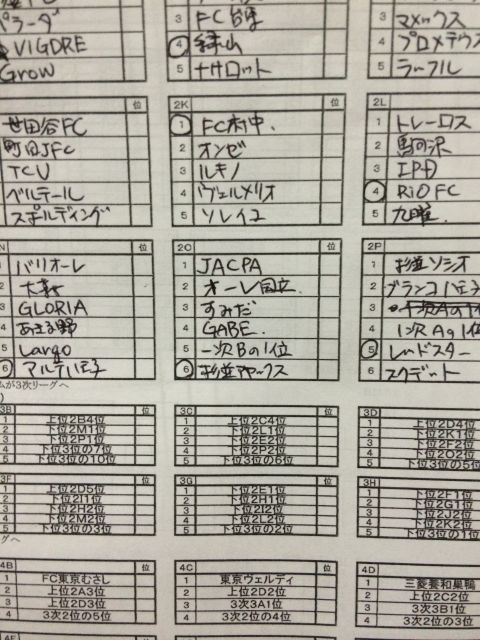 パラーダ
VIGORE
Grow
3 FC台東
④ 緑山
5 ナサロット
3 マメックス
4 プロメテウス
5 ラッフル
位
世田谷FC
町田JFC
TCU
ベルテール
スポルディング
2K 位
① FC府中.
2 オンゼ
3 ルキノ
4 ヴェルメリオ
5 ソレイユ
2L
1 トレーロス
2 駒沢
3
④ RiO FC
5 九曜.
N 位
1 バリオーレ
2
3 GLORIA
4 あきる野
5 Largo
⑥ アルテ八王子
2O 位
1 JACPA
2 オーレ国立.
3 すみだ
4 GABE.
5 一次Bの1位
⑥ 杉並アヤックス
2P
1 杉並ソシオ
2 ブランコ八王子
3 一次Aの1
4 1次Aの1位
⑤ レッドスター
6 スクデット
ムが3次リーグへ
3B 位
1 上位2B4位
2 上位2M1位
3 上位2P1位
4 下位3位の7位
5 下位3位の10位
3C 位
1 上位2C4位
2 上位2L1位
3 上位2E2位
4 上位2P2位
5 下位3位の6位
3D
1 上位2D4位
2 上位2K1位
3 上位2F2位
4 上位2O2位
5 下位3位の5位
3F 位
1 上位2D5位
2 上位2I1位
3 上位2H2位
4 上位2M2位
5 下位3位の3位
3G 位
1 上位2E1位
2 上位2H1位
3 上位2I2位
4 上位2L2位
5 下位3位の2位
3H
1 上位2F1位
2 上位2G1位
3 上位2J2位
4 上位2K2位
5 下位3位の1位
ーグへ
4B 位
1 FC東京むさし
2 上位2A3位
3 上位2D3位
4 3次2位の5位
4C 位
1 東京ヴェルディ
2 上位2D2位
3 3次3A1位
4 3次2位の4位
4D
1 三菱養和巣鴨
2 上位2C2位
3 3次3B1位
4 3次2位の3位
4F
4G 位
4H